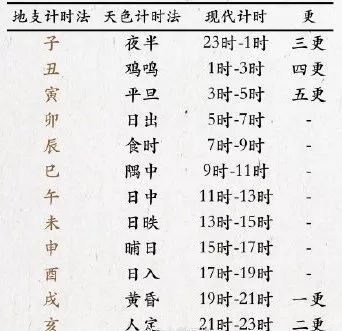 地支计时法 天色计时法 现代计时 更
子 夜半 23时-1时 三更
丑 鸡鸣 1时-3时 四更
寅 平旦 3时-5时 五更
卯 日出 5时-7时 -
辰 食时 7时-9时 -
巳 隅中 9时-11时 -
午 日中 11时-13时 -
未 日昳 13时-15时 -
申 晡日 15时-17时 -
酉 日入 17时-19时 -
戌 黄昏 19时-21时 一更
亥 人定 21时-23时 二更